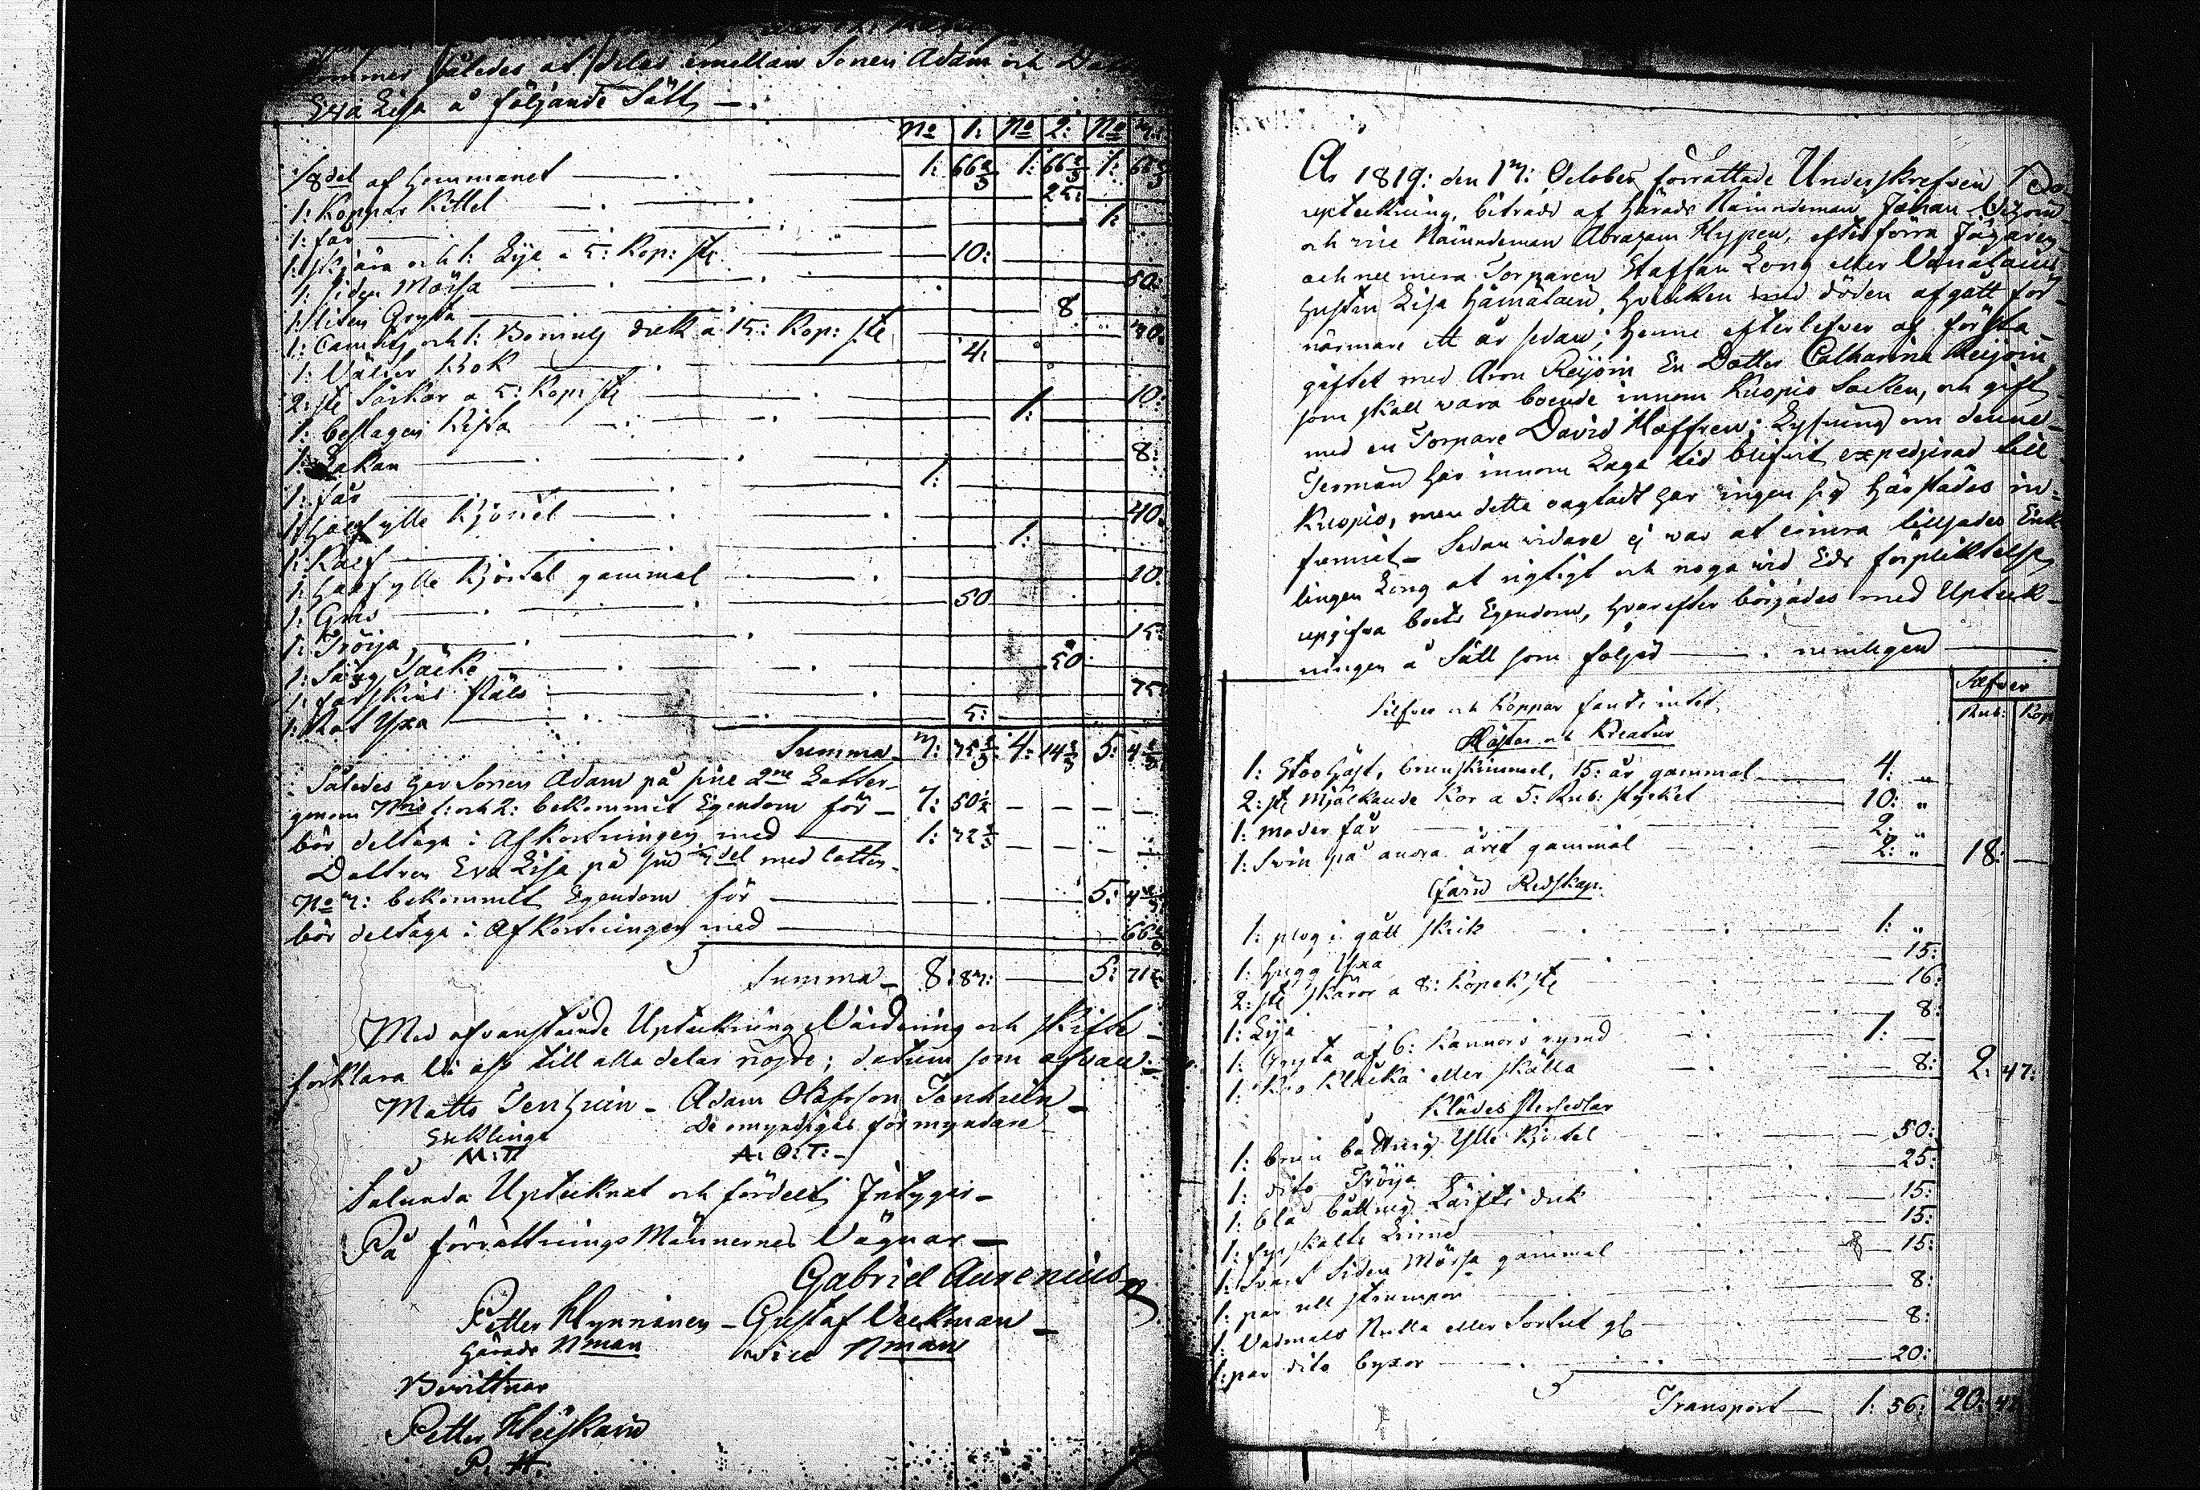 kommer således at delas emellan Sonen Adam och
Eva Lisa å följande Sätt
No 1: No 2: No 3:
1/8 del af Hemmanet 1: 66 2/3 1: 66 2/3 1: 66 2/3
1: Koppar Kittel 25:
1: får 1:
1: skjära och 1: Lija a 5: Kop: ste 10:
1: siden Mössa 50:
1: liten Gryta 8
1: Camlts och 1: Bomuls duk a 15: Kop: ste 30:
1: Välter krok 4:
2: ste Särkar a 5: Kop: ste 10:
1: beslagen Kista 1:
1: Lakan 8:
1: får 1:
1: Half ylle Kjortel 40:
1: Kalf 1:
1: Half ylle Kjortel gammal 10:
1: Gris 50
1: Tröija 15:
1: Säng Täcke 50
1: fårskins Päls 75:
1: Not Yxa 5:
Summa 3: 75 2/3 4: 14 2/3 5: 4 2/3
Således har Sonen Adam på sine 2ne Lotter
genom Nris 1: och 2: bekommit Egendom för 7: 50 1/2
bör deltaga i Afkortningen med 1: 32 2/3
Dottren Eva Lisa på sin 1/3 del med Lotten
No 3: bekommit Egendom för 5: 4 2/3
bör deltaga i Afkortningen med 66 2/3
Summa 8: 83: 5: 71
Med ofvanstående Uptekning Värdering och skifte
förklara Vi oss till alla delar nöjde; datum som ofvan
Matts Tenhuin Adam Olofsson Tenhuin
Enklinge De omyndigas förmyndare
M: T A: O: T:
Salunda Upteknat och fördelt Intygar
På förrättnings Männernes Vägnar
Gabriel Aurenius
Petter Hynninen Gustaf Veckman
Härads Nman vice Nman
Bevittnar
Petter
P. H.
År 1819: den 13: October förrättade Underskrefven Bo
upteckning, biträdd af Härads Nämndeman Johan
och vice Nämndeman Abraham Hypen, efter förra Jägaren
och nu mera Torparen Staffan Long eller Vanalains
hustru Lisa Hämälain, hvilken med döden afgått för
närmare ett år sedan; Henne efterlefver af första
giftet med Aron Reijoin En Dotter Catharina Reijoin
som skall vara boende innom Kuopio Socken, och gift
med en Torpare David Haffren; Lysning om denne
Terman har innom Laga tid blifvit expedierad till
Kuopio, men detta oagtadt har ingen sig härstädes in
funnit Sedan vidare ej var at erinra tillsades Enk
lingen Long at rigtigt och noga vid Eds förpliktelse
upgifva boets Egendom, hvarefter börjades med Uptek
ningen å Sätt som följer nemligen
Silfver
Rub: Kop
Silfver och Koppar fants intet
Hästar och Kreatur
1: Stoo häst, brunskimmel, 15: år gammal 4: „
2: ste Mjölkande Kor a 5: Rub: stycket 10: „
1: moder får 2: „
1: Svin på andra året gammal 2: „ 18:
Järn Redskap
1: plog i gått skik 1: „
1: hugg Yxa 15:
2: ste skäror a 8: Kopek ste 16:
1: Lija 8:
1: Gryta af 6: Kannors rymd 1:
1: Koo Klåcka eller skälla 8: 2: 47:
Klädes Persedlar
1: brun båttnig Ylle Kjortel 50:
1: dito Tröija 25:
1: blå båttnig Lärfts duk 15:
1: fyrskaftt Linne 15:
1: svart Siden Mössa gammal 15:
1: par ull strumpor 8:
1: Vadmals Rulla eller Sortut gl 8:
1: par dito byxor 20:
Transport 1: 56: 20: 47